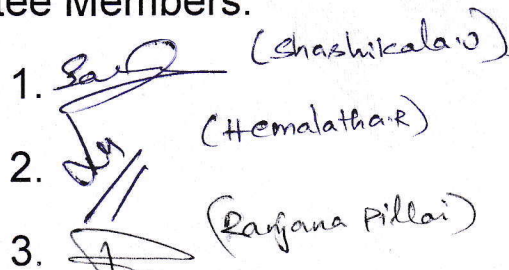 tee Members:
1. (Shashikala.U)
2. (Hemalatha.R)
3. (Ranjana Pillai)